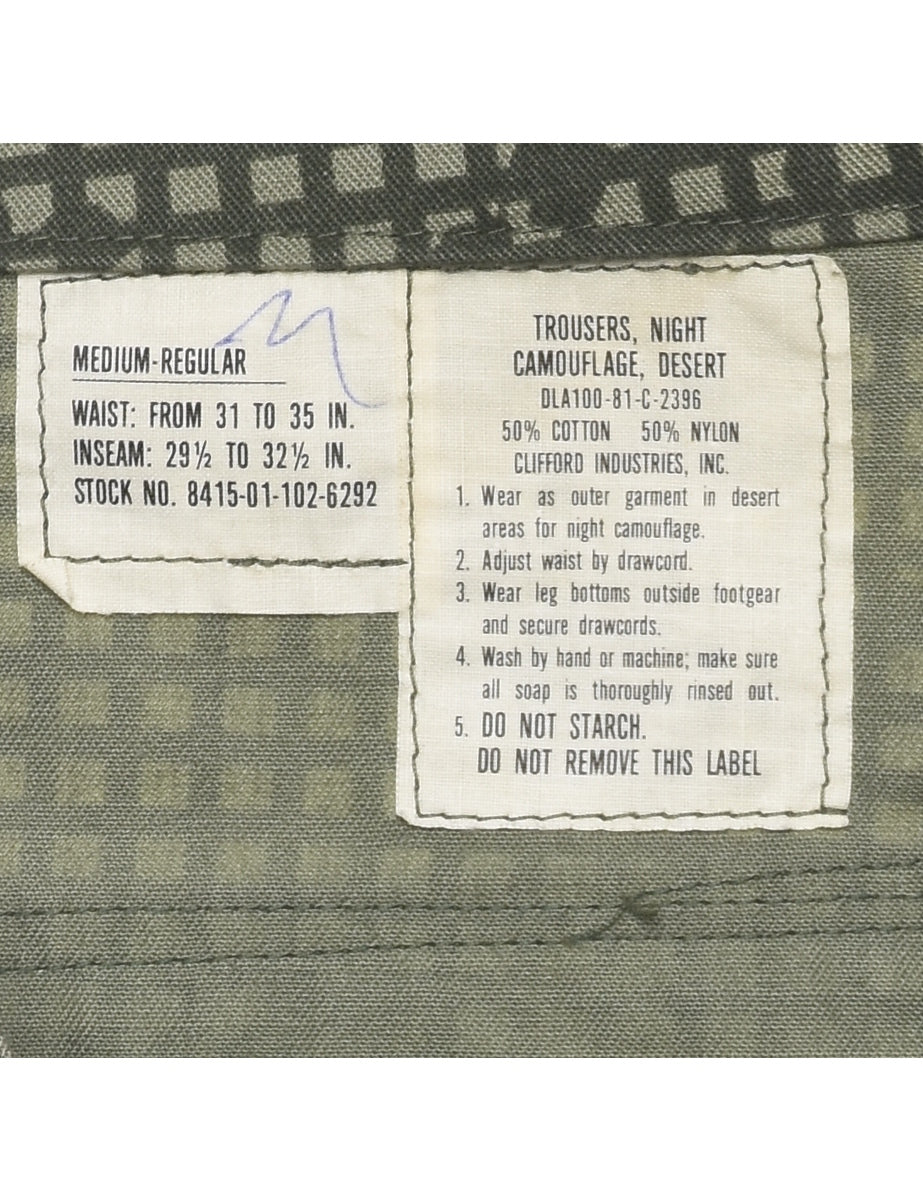 M
MEDIUM-REGULAR
WAIST: FROM 31 TO 35 IN.
INSEAM: 29½ TO 32½ IN.
STOCK NO. 8415-01-102-6292
TROUSERS, NIGHT
CAMOUFLAGE, DESERT
DLA100-81-C-2396
50% COTTON 50% NYLON
CLIFFORD INDUSTRIES, INC.
1. Wear as outer garment in desert
areas for night camouflage.
2. Adjust waist by drawcord.
3. Wear leg bottoms outside footgear
and secure drawcords.
4. Wash by hand or machine; make sure
all soap is thoroughly rinsed out.
5. DO NOT STARCH.
DO NOT REMOVE THIS LABEL